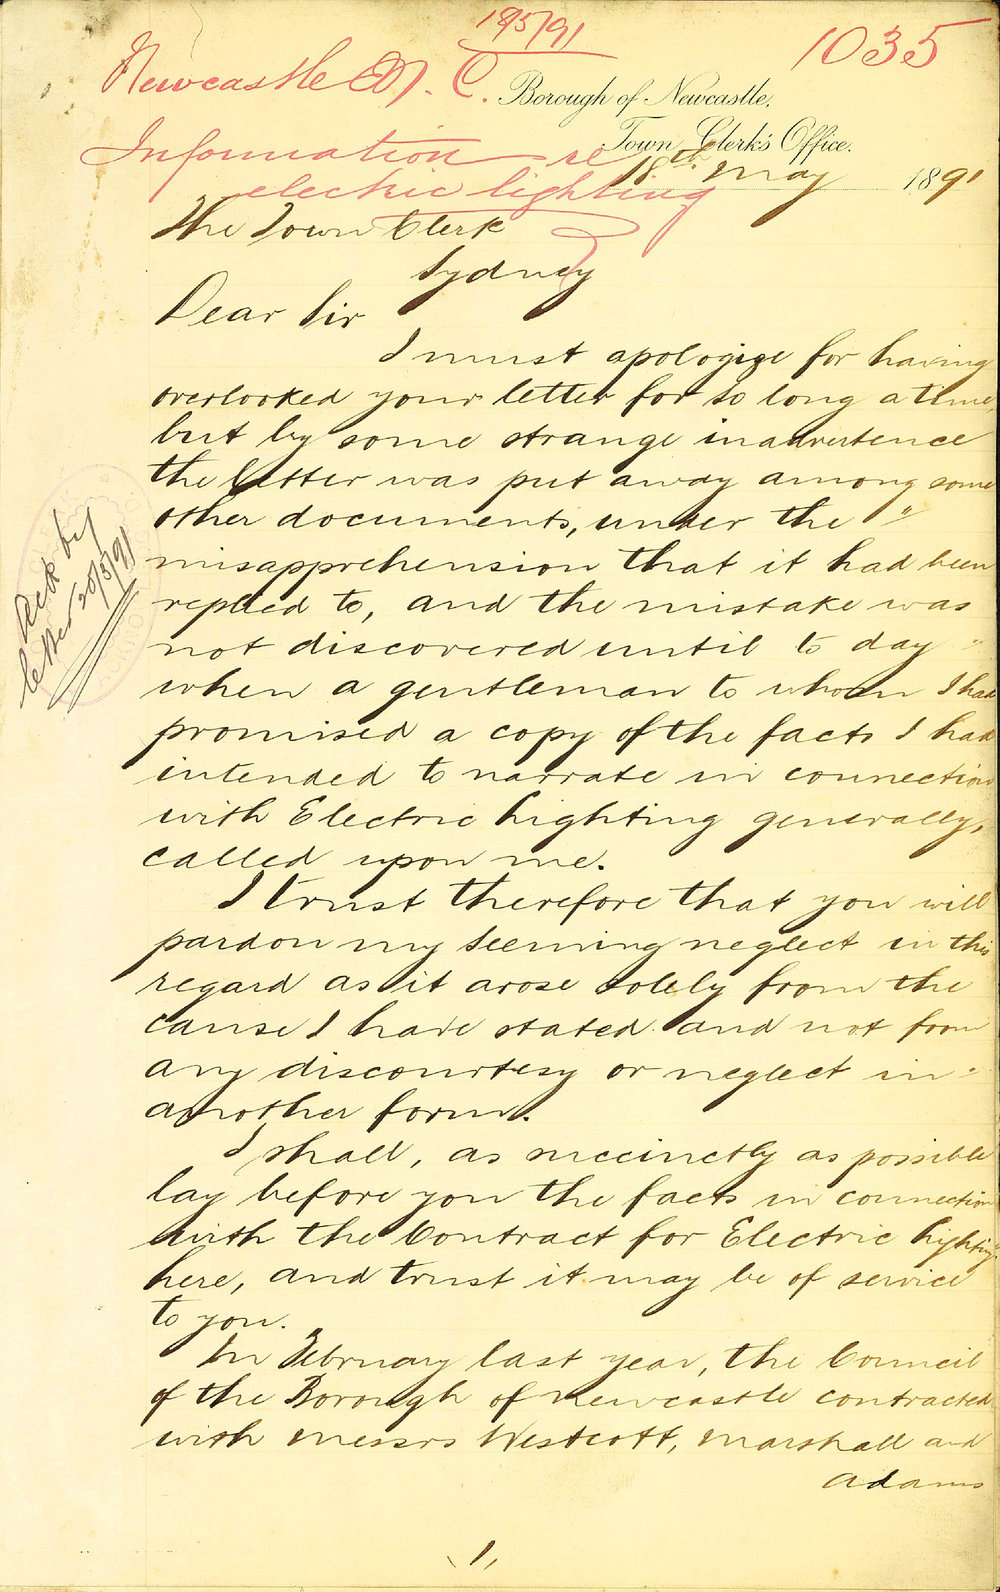 18/5/91
1035
Newcastle M. C.
Borough of Newcastle.
Town Clerk's Office.
Information re
electric lighting
18th May 1891
The Town Clerk
Sydney
Dear Sir
I must apologize for having
overlooked your letter for so long a time,
but by some strange inadvertence
the letter was put away among some
other documents, under the "
misapprehension that it had been
replied to, and the mistake was
not discovered until to day "
when a gentleman to whom I had
promised a copy of the facts I had
intended to narrate in connection
with Electric Lighting generally,
called upon me.
I trust therefore that you will
pardon my seeming neglect in this
regard as it arose solely from the
cause I have stated and not from
any discourtesy or neglect in
another form.
I shall, as succinctly as possible
lay before you the facts in connection
with the Contract for Electric Lighting
here, and trust it may be of service
to you.
In February last year, the Council
of the Borough of Newcastle contracted
with Messrs Westcott, Marshall and
Adams
1,
Ack by
letter 20/5/91